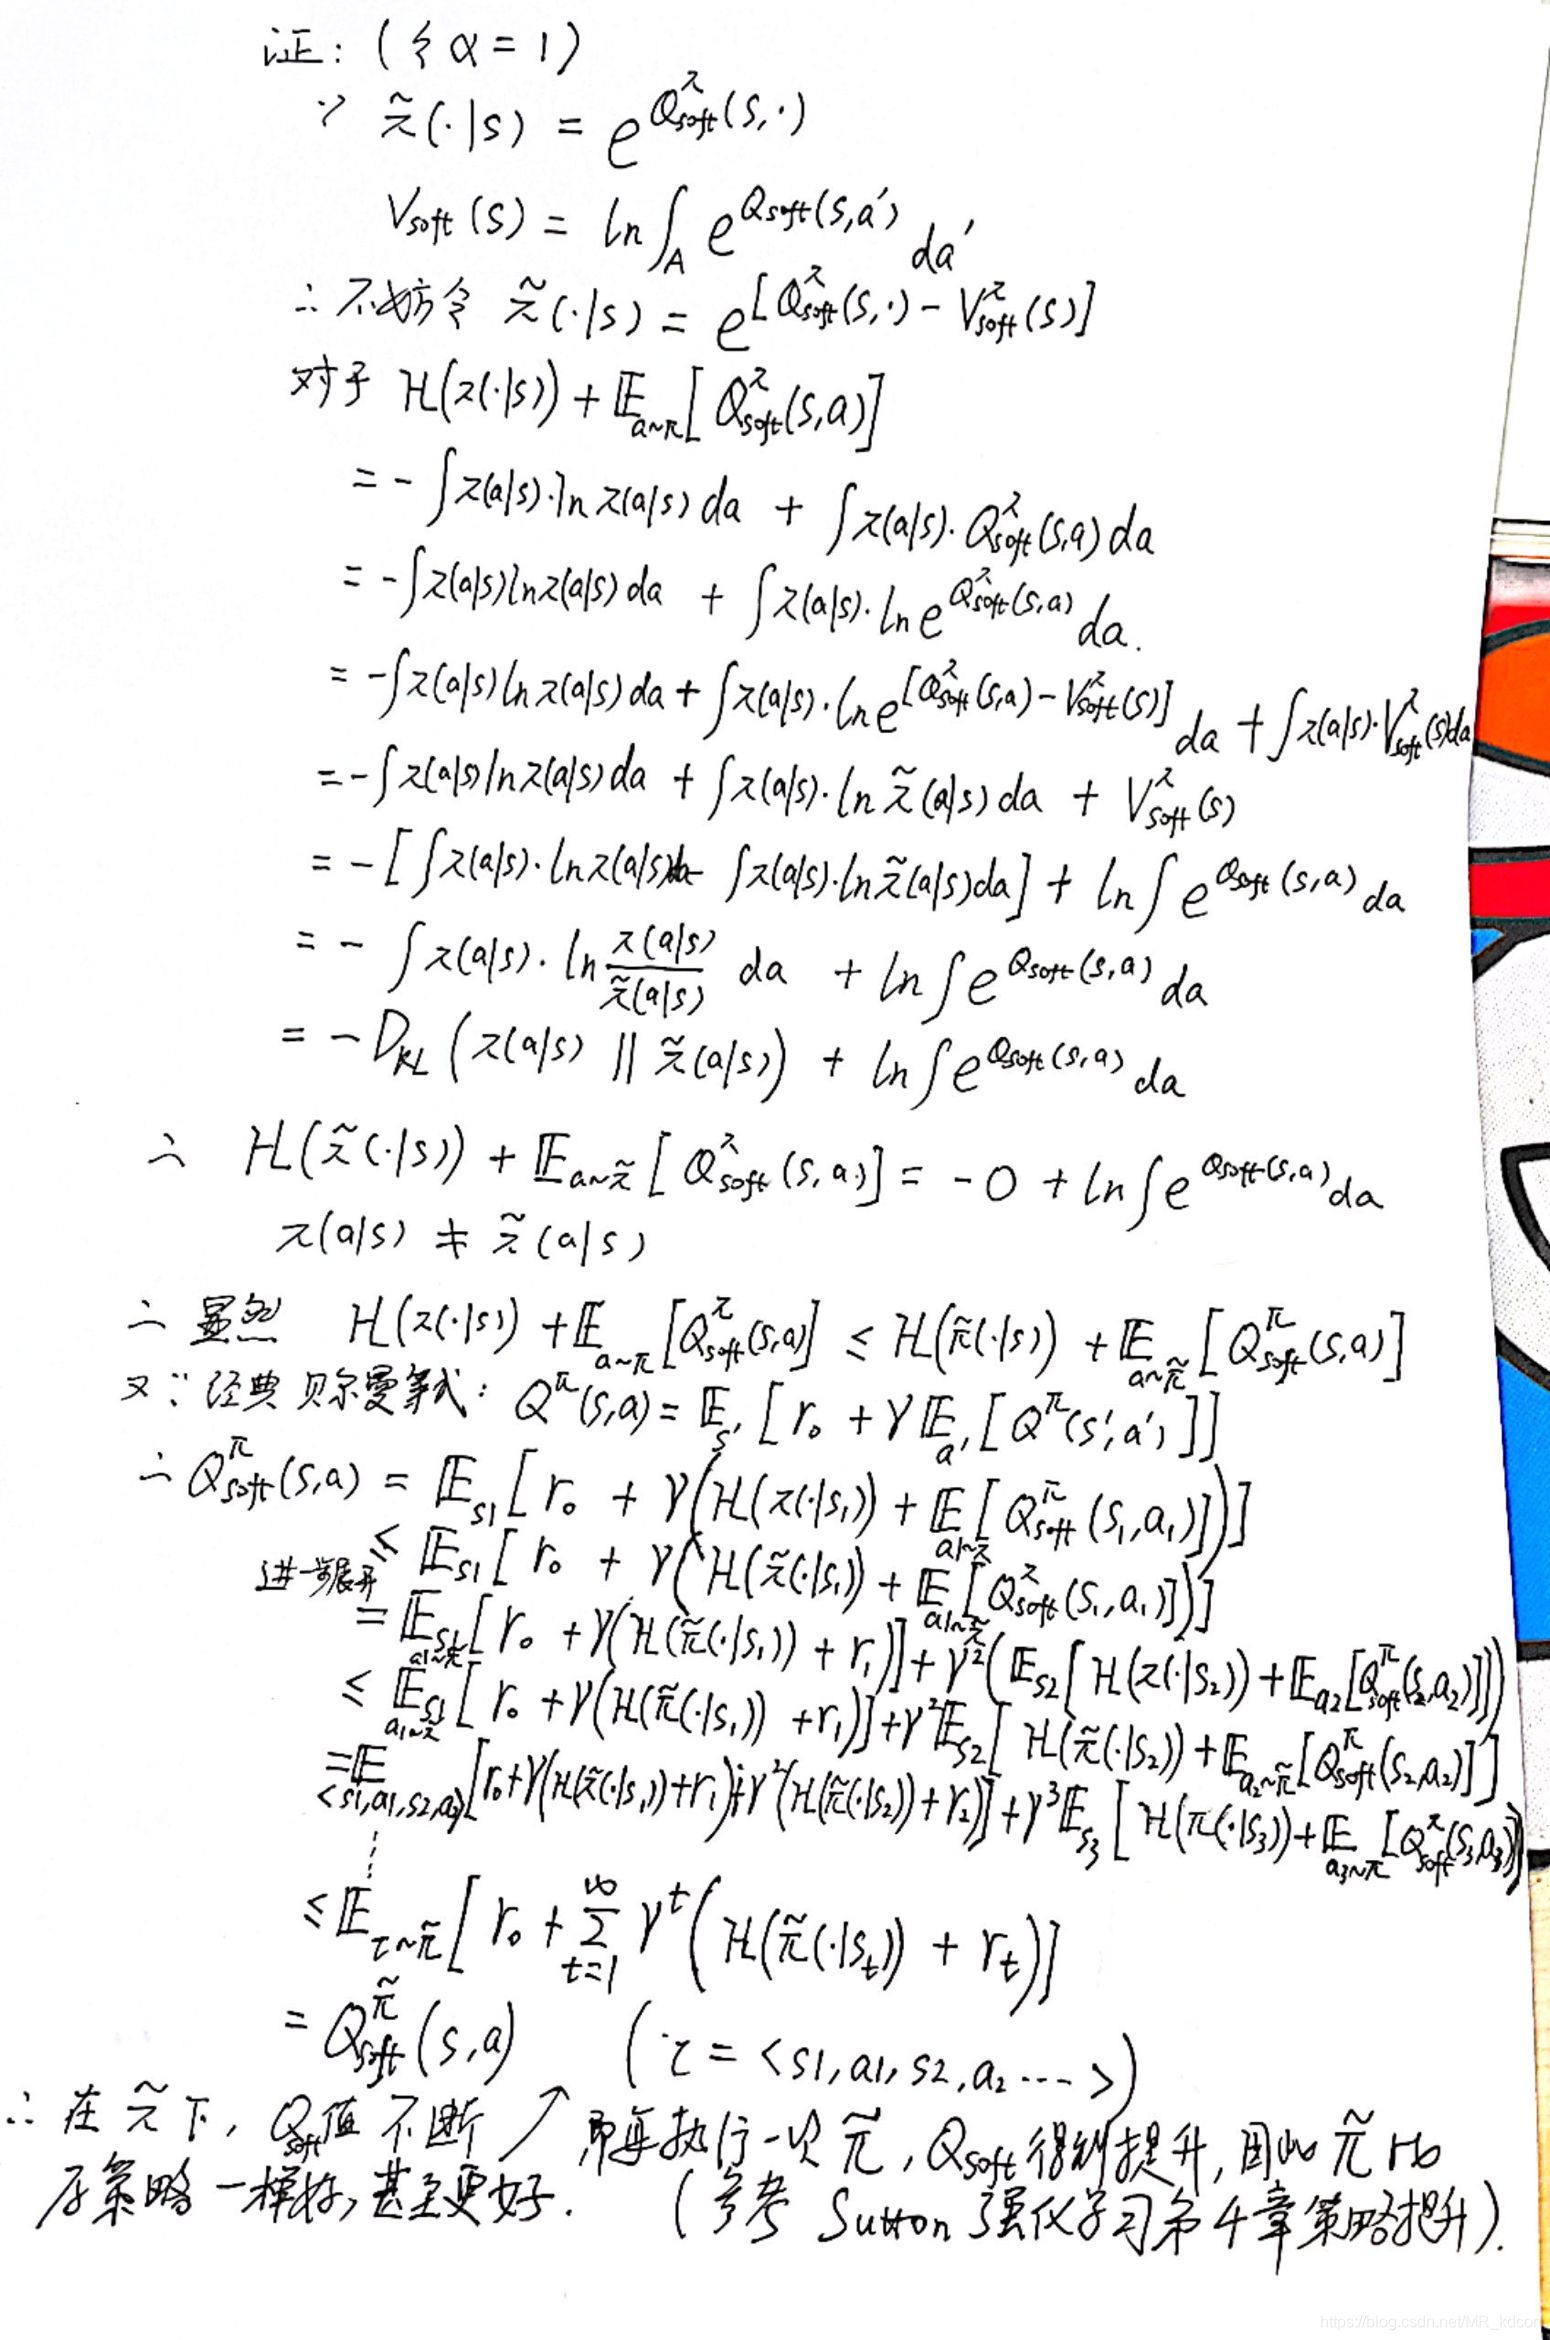 证：(令 α = 1)
∵ π̃(·|s) = e^{Q^π_soft(s,·)}
V_soft(s) = ln∫_A e^{Q_soft(s,a')} da'
∴ 不妨令 π̃(·|s) = e^{[Q^π_soft(s,·) - V^π_soft(s)]}
对于 H(π(·|s)) + 𝔼_{a~π}[Q^π_soft(s,a)]
= - ∫π(a|s)·ln π(a|s) da + ∫π(a|s)·Q^π_soft(s,a) da
= -∫π(a|s) ln π(a|s) da + ∫π(a|s)·ln e^{Q^π_soft(s,a)} da.
= -∫π(a|s) ln π(a|s) da + ∫π(a|s)·ln e^{[Q^π_soft(s,a) - V^π_soft(s)]} da + ∫π(a|s)·V^π_soft(s) da
= -∫π(a|s) ln π(a|s) da + ∫π(a|s)·ln π̃(a|s) da + V^π_soft(s)
= -[∫π(a|s)·ln π(a|s) da - ∫π(a|s)·ln π̃(a|s) da] + ln∫e^{Q_soft(s,a)} da
= - ∫π(a|s)·ln \frac{π(a|s)}{π̃(a|s)} da + ln∫e^{Q_soft(s,a)} da
= - D_KL(π(a|s) || π̃(a|s)) + ln∫e^{Q_soft(s,a)} da
∴ H(π̃(·|s)) + 𝔼_{a~π̃}[Q^π_soft(s,a)] = -0 + ln∫e^{Q_soft(s,a)} da
π(a|s) ≠ π̃(a|s)
∴ 显然 H(π(·|s)) + 𝔼_{a~π}[Q^π_soft(s,a)] ≤ H(π̃(·|s)) + 𝔼_{a~π̃}[Q^π_soft(s,a)]
又∵ 经典贝尔曼等式：Q^π(s,a) = 𝔼_{s'}[r₀ + γ𝔼_{a'}[Q^π(s',a')]]
∴ Q^π_soft(s,a) = 𝔼_{s1}[r₀ + γ(H(π(·|s₁)) + 𝔼_{a1~π}[Q^π_soft(s₁,a₁)])]
≤ 𝔼_{s1}[r₀ + γ(H(π̃(·|s₁)) + 𝔼_{a1~π̃}[Q^π_soft(s₁,a₁)])]
进一步展开
= 𝔼_{s1, a1~π̃}[r₀ + γ(H(π̃(·|s₁)) + r₁)] + γ²(𝔼_{s2}[H(π(·|s₂)) + 𝔼_{a2}[Q^π_soft(s₂,a₂)]])
≤ 𝔼_{s1, a1~π̃}[r₀ + γ(H(π̃(·|s₁)) + r₁)] + γ²𝔼_{s2}[H(π̃(·|s₂)) + 𝔼_{a2~π̃}[Q^π_soft(s₂,a₂)]]
= 𝔼_{<s1,a1,s2,a2>}[r₀ + γ(H(π̃(·|s₁)) + r₁) + γ²(H(π̃(·|s₂)) + r₂)] + γ³𝔼_{s3}[H(π(·|s₃)) + 𝔼_{a3~π}[Q^π_soft(s₃,a₃)]]
⋮
≤ 𝔼_{τ~π̃}[r₀ + Σ_{t=1}^{∞} γ^t(H(π̃(·|s_t)) + r_t)]
= Q^π̃_soft(s,a) (τ = <s1, a1, s2, a2 ··· >)
∴ 在 π̃ 下, Q_soft值不断 ↗ 即每执行一次 π̃, Q_soft得到提升, 因此 π̃ rb
后策略一样好, 甚至更好. (参考 Sutton 强化学习第4章策略提升).
https://blog.csdn.net/MR_kdcon